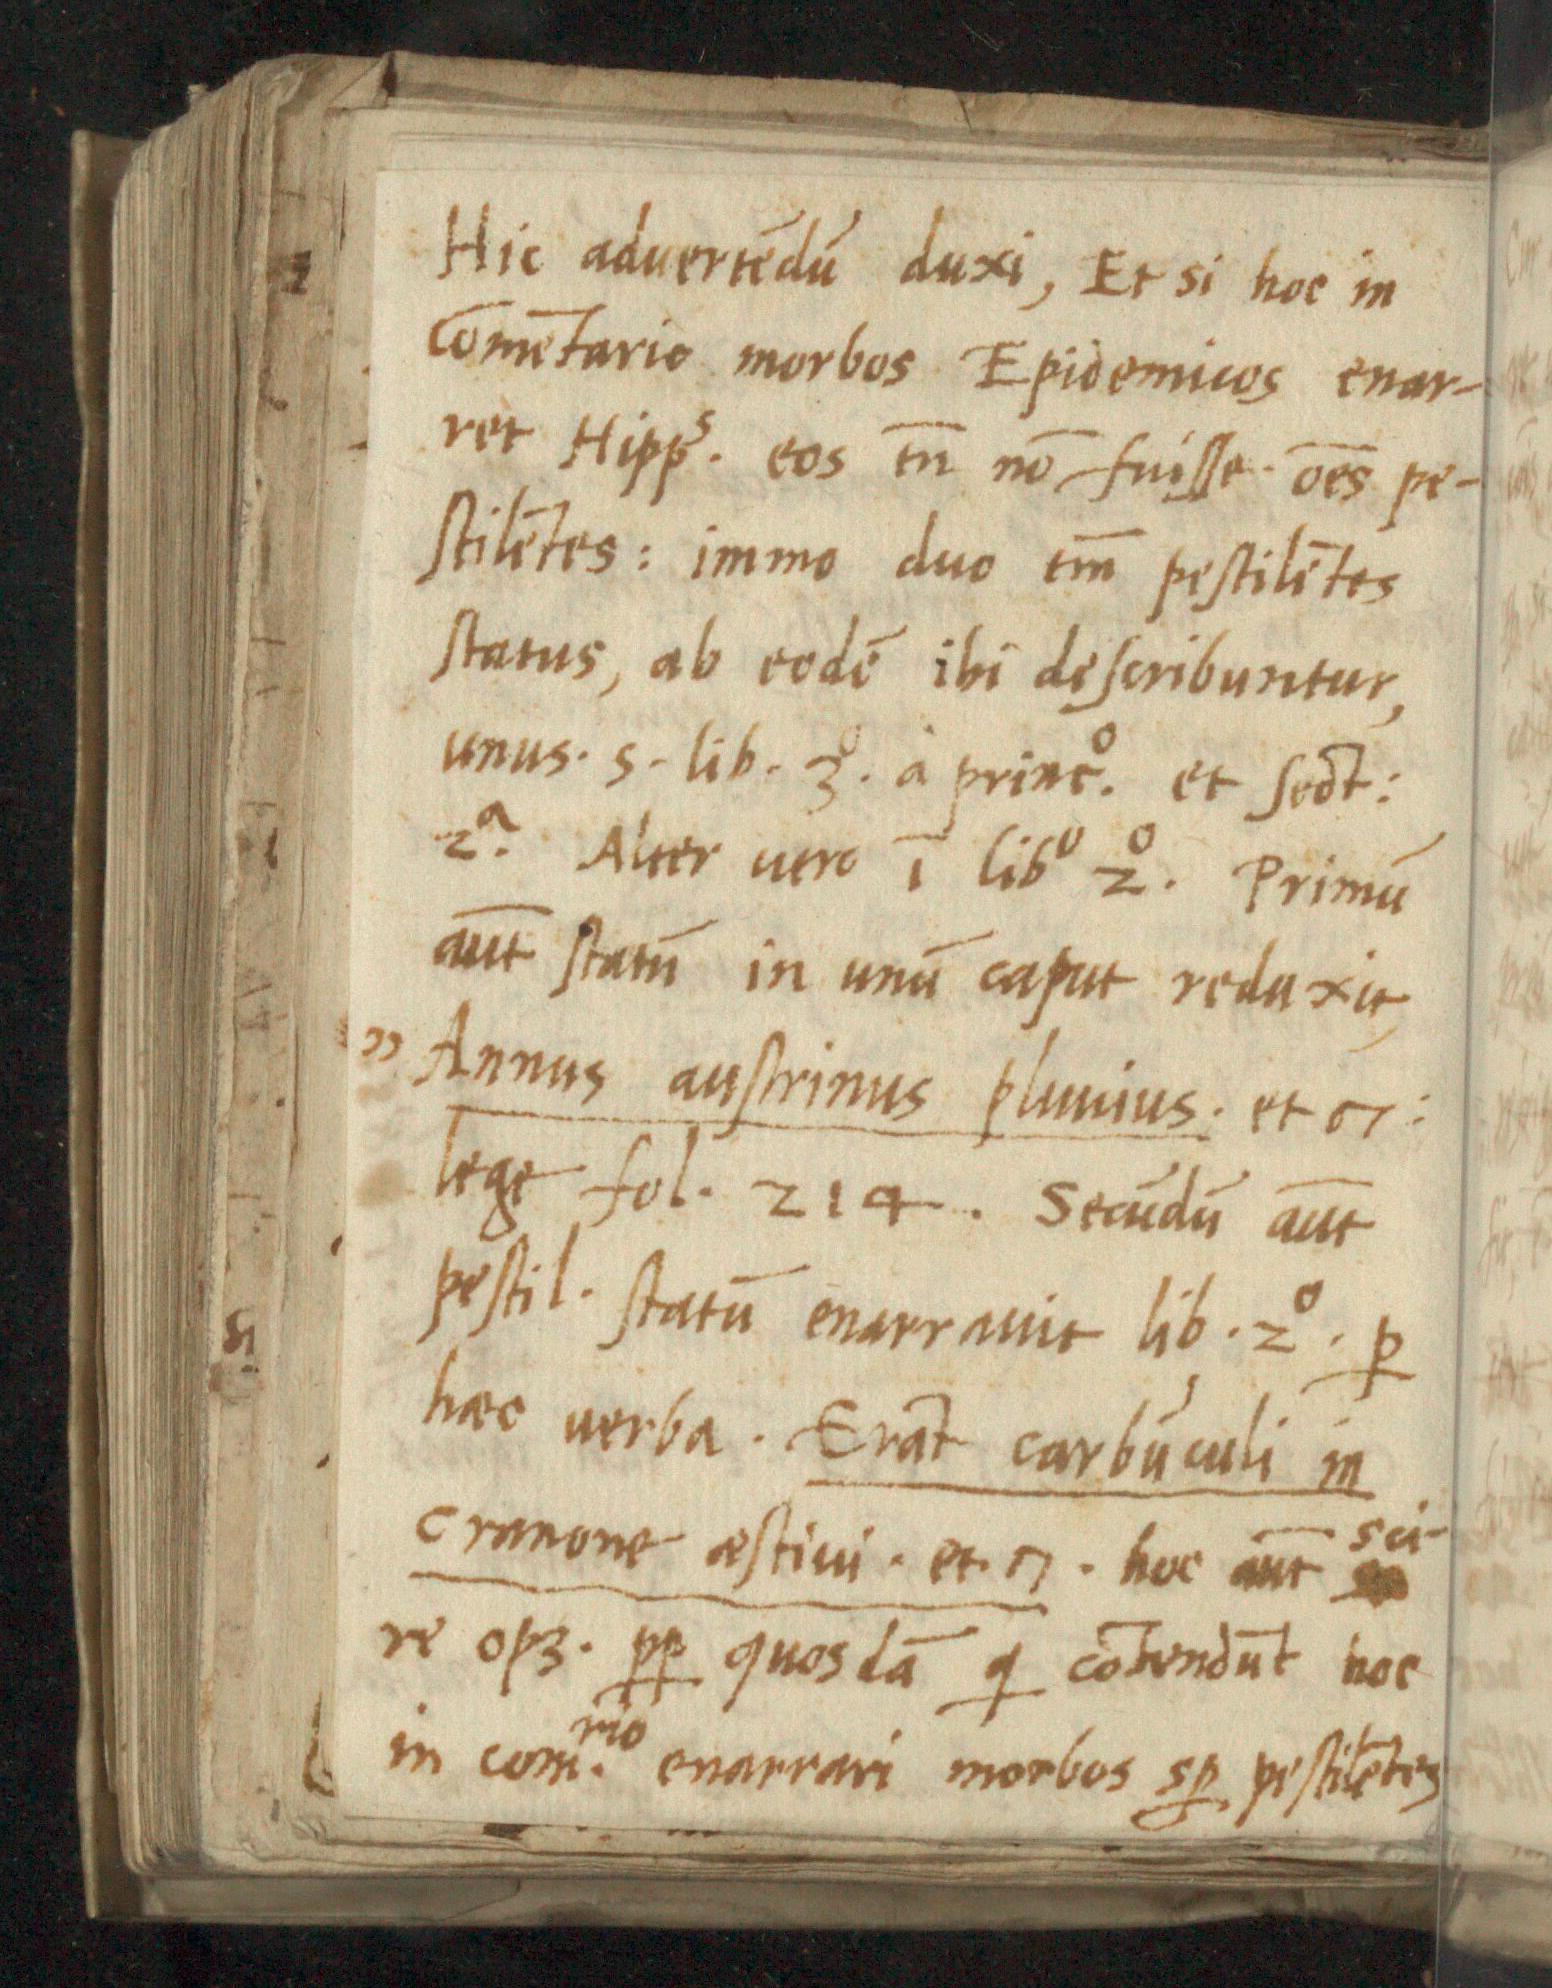 Hic aduertēdū duxi, Et si hoc in
Comētario morbos Epidemicos enar-
ret Hippˢ. eos tn̄ nō fuisse. oēs pe-
stilētes: immo duo tm̄ pestilētes
status, ab eodē ibi describuntur,
unus. s. lib. 3º. à princº. et sect̄:
2ª. Alter uero ī libº 2º. Primū
aut̄ statū in unū caput reduxit,
" Annus austrinus pluuius. et c7:
lege fol. 214. Secūdū aut̄
pestil. statū enarrauit lib. 2º. ꝑ
hæc uerba. Erāt carbūculi in
cranone æstiui. et. c7. hoc aut̄ sci-
re opʒ. ꝑꝑ quosdā q̨ cōtendūt hoc
in com̄.rio enarrari morbos sꝑ pestilētes